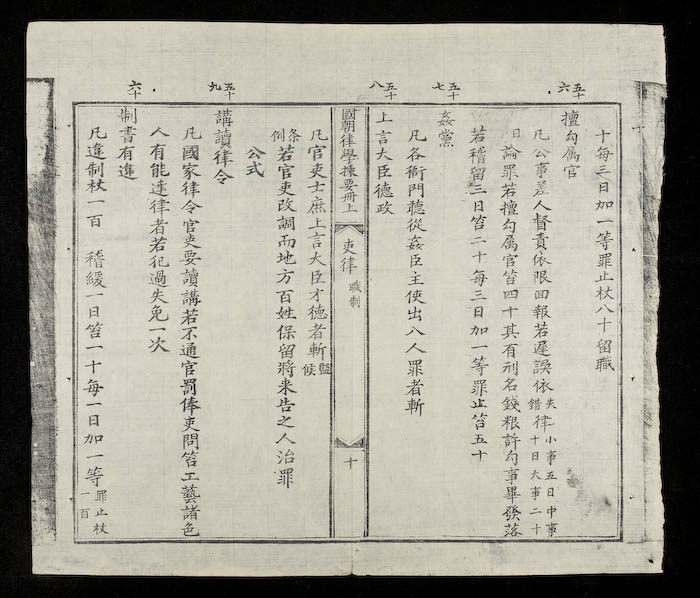 五十六
五十七
五十八
五十九
六十
十每三日加一等罪止杖八十留職
擅勾属官
凡公事差人督責依限回報若遲誤依失錯律小事五日中事十日大事二十
日論罪若擅勾属官笞四十其有刑名錢粮許勾事畢發落
若稽留三日笞二十每三日加一等罪止笞五十
姦黨
凡各衙門聽從姦臣主使出入人罪者斬
上言大臣德政
國朝律學揀要册上
吏律 職制
十
凡官吏士庶上言大臣才德者斬監候
条例若官吏改調而地方百姓保留將来告之人治罪
公式
講讀律令
凡國家律令官吏要讀講若不通官罰俸吏問笞工藝諸色
人有能達律者若犯過失免一次
制書有違
凡違制杖一百 稽緩一日笞一十每一日加一等罪止杖一百